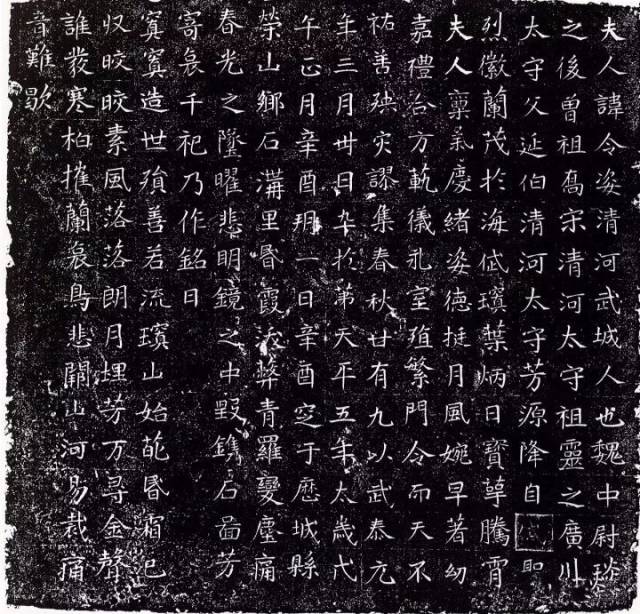 夫人諱令姿清河武城人也魏中尉琰
之後曾祖喬宋清河太守祖靈之廣川
太守父延伯清河太守芳源降自
烈徽蘭茂於海岱瓊葉炳日寶萼騰霄
夫人稟氣慶緒姿德挺月風婉早著幼
嘉禮合方軌儀孔室殖繁門令而天不
祐善殃灾謬集春秋廿有九以武泰元
年三月卅日卒於第天平五年太歲戊
午正月辛酉玥一日辛酉窆于歷城縣
榮山鄉石溝里昏霞青羅變塵痛
春光之墜曜悲明鏡之中毀鐫石啚芳
寄哀千祀乃作銘曰
寞寞造世殞善若流瓊山始霜已
収皎皎素風落落朗月埋芳万尋金聲
誰發寒柏摧蘭哀鳥悲關山河易裁痛
音難歇